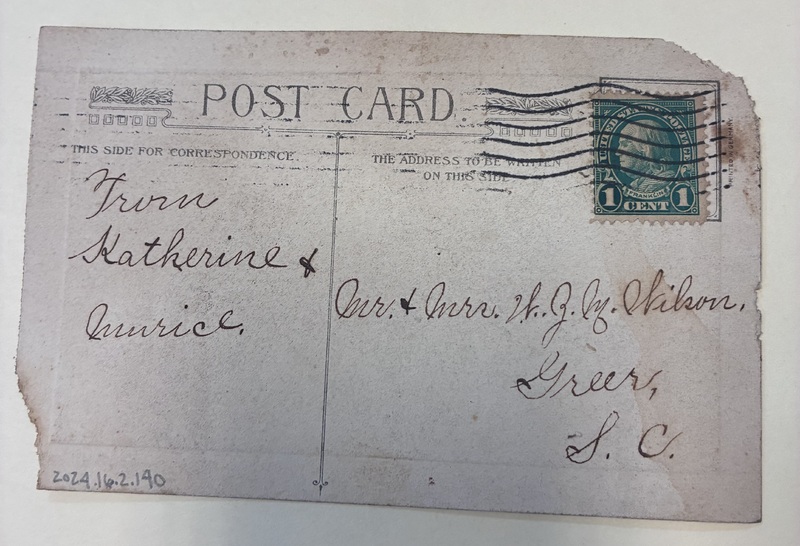 POST CARD.
THIS SIDE FOR CORRESPONDENCE.
THE ADDRESS TO BE WRITTEN
ON THIS SIDE
UNITED STATES POSTAGE
FRANKLIN
1 CENT 1
From
Katherine &
Muriel.
Mr. & Mrs. W. Z. M. Wilson.
Greer,
S. C.
2024.16.2.190